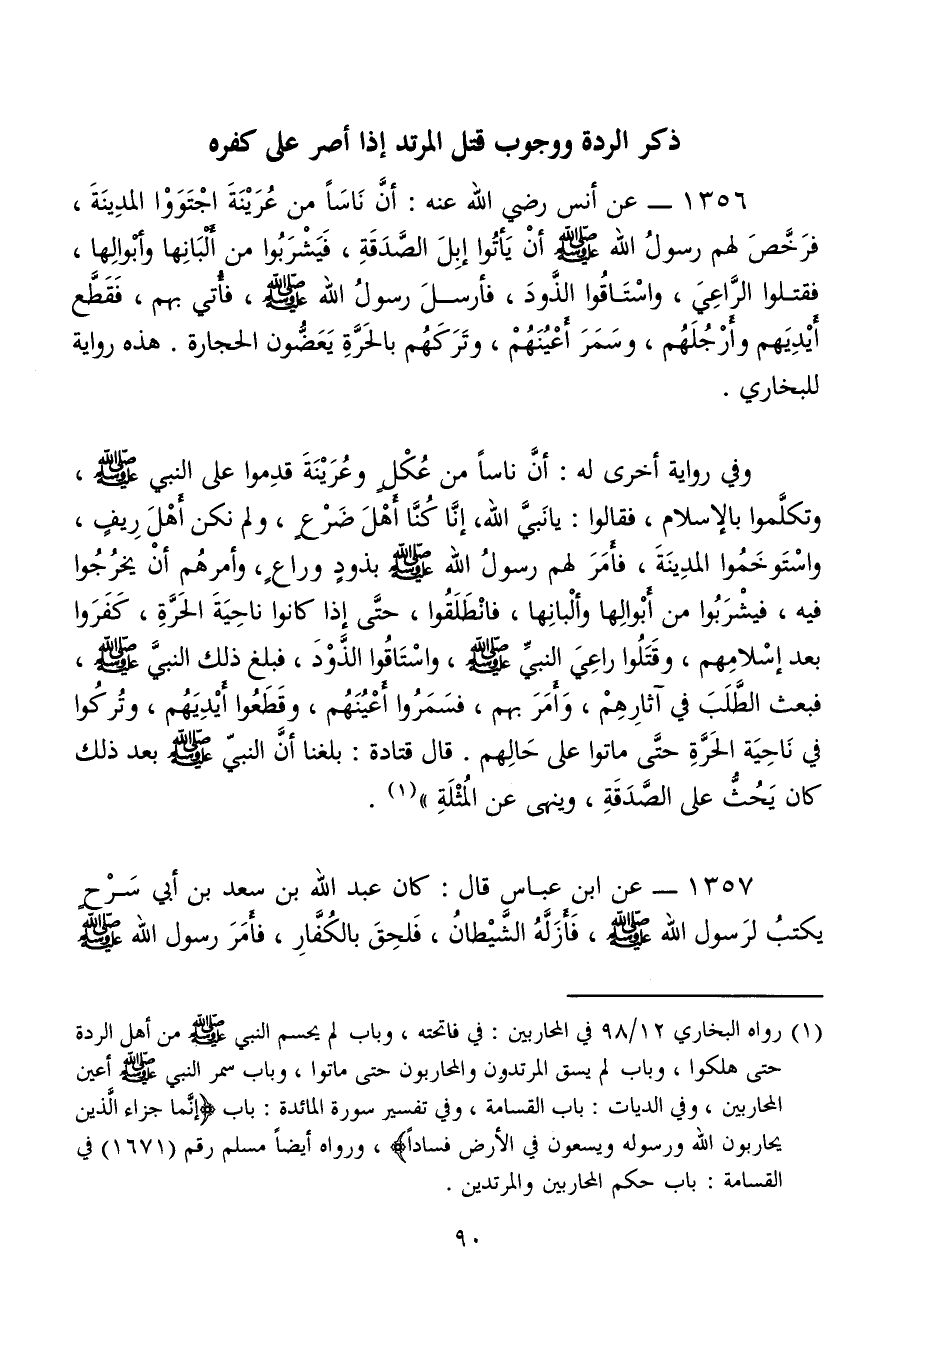 ذكر الردة ووجوب قتل المرتد إذا أصر على كفره
١٣٥٦ ــ عن أنس رضي الله عنه : أنَّ نَاسَاً من عُرَيْنَةَ اجْتَوَوْا المدِينَةَ ،
فرَخَّصَ لهم رسولُ الله ﷺ أنْ يَأتُوا إبِلَ الصَّدَقَةِ ، فَيَشْرَبُوا من أَلْبَانِها وأبْوالِها ،
فقتـلوا الرَّاعِيَ ، واسْتَـاقُوا الذَّودَ ، فأرسـلَ رسولُ الله ﷺ ، فأُتي بهم ، فَقَطَّع
أَيْدِيَهم وأَرْجُلَهُم ، وسَمَرَ أَعْيُنَهُمْ ، وتَرَكَهُم بالحَرَّةِ يَعَضُّون الحجارة . هذه رواية
للبخاري .
وفي رواية أخرى له : أنَّ ناساً من عُكْلٍ وعُرَيْنَةَ قدِموا على النبي ﷺ ،
وتكلَّموا بالإسلام ، فقالوا : يانَبيَّ الله، إنَّا كُنَّا أَهْلَ ضَرْعٍ ، ولم نكن أَهْلَ رِيفٍ ،
واسْتَوخَمُوا المدِينَةَ ، فأمَرَ لهم رسولُ الله ﷺ بذودٍ وراعٍ، وأمرهُم أنْ يخرُجُوا
فيه ، فيشْرَبُوا من أَبْوالِها وألْبانِها ، فانْطَلَقُوا ، حتَّى إذا كانوا ناحِيَةَ الحَرَّةِ ، كَفَرَوا
بعد إسْلامِهم ، وقَتَلُوا راعِيَ النبيِّ ﷺ ، واسْتَاقُوا الذَّوْدَ ، فبلغ ذلك النبيَّ ﷺ ،
فبعث الطَّلَبَ في آثارِهِمْ ، وَأَمَرَ بهم ، فسَمَرُوا أَعْيُنَهُم ، وقَطَعُوا أَيْدِيَهُم ، وتُركُوا
في نَاحِيَة الحَرَّةِ حتَّى ماتوا على حَالِهم . قال قتادة : بلغنا أنَّ النبيّ ﷺ بعد ذلك
كان يَحُثُّ على الصَّدَقَةِ ، وينهى عن المُثْلَةِ »(١) .
١٣٥٧ ــ عن ابن عبـاس قال : كان عبد الله بن سعد بن أبي سَـرْحٍ
يكتبُ لرَسول الله ﷺ ، فَأَزَلَّهُ الشَّيْطانُ ، فَلحِقَ بالكُفَّارِ ، فأَمَرَ رسول الله ﷺ
(١) رواه البخاري ٩٨/١٢ في المحاربين : في فاتحته ، وباب لم يحسم النبي ﷺ من أهل الردة
حتى هلكوا ، وباب لم يسق المرتدون والمحاربون حتى ماتوا ، وباب سمر النبي ﷺ أعين
المحاربين ، وفي الديات : باب القسامة ، وفي تفسير سورة المائدة : باب ﴿إنَّما جزاء الَّذين
يحاربون الله ورسوله ويسعون في الأرض فساداً﴾ ، ورواه أيضاً مسلم رقم (١٦٧١) في
القسامة : باب حكم المحاربين والمرتدين .
٩٠